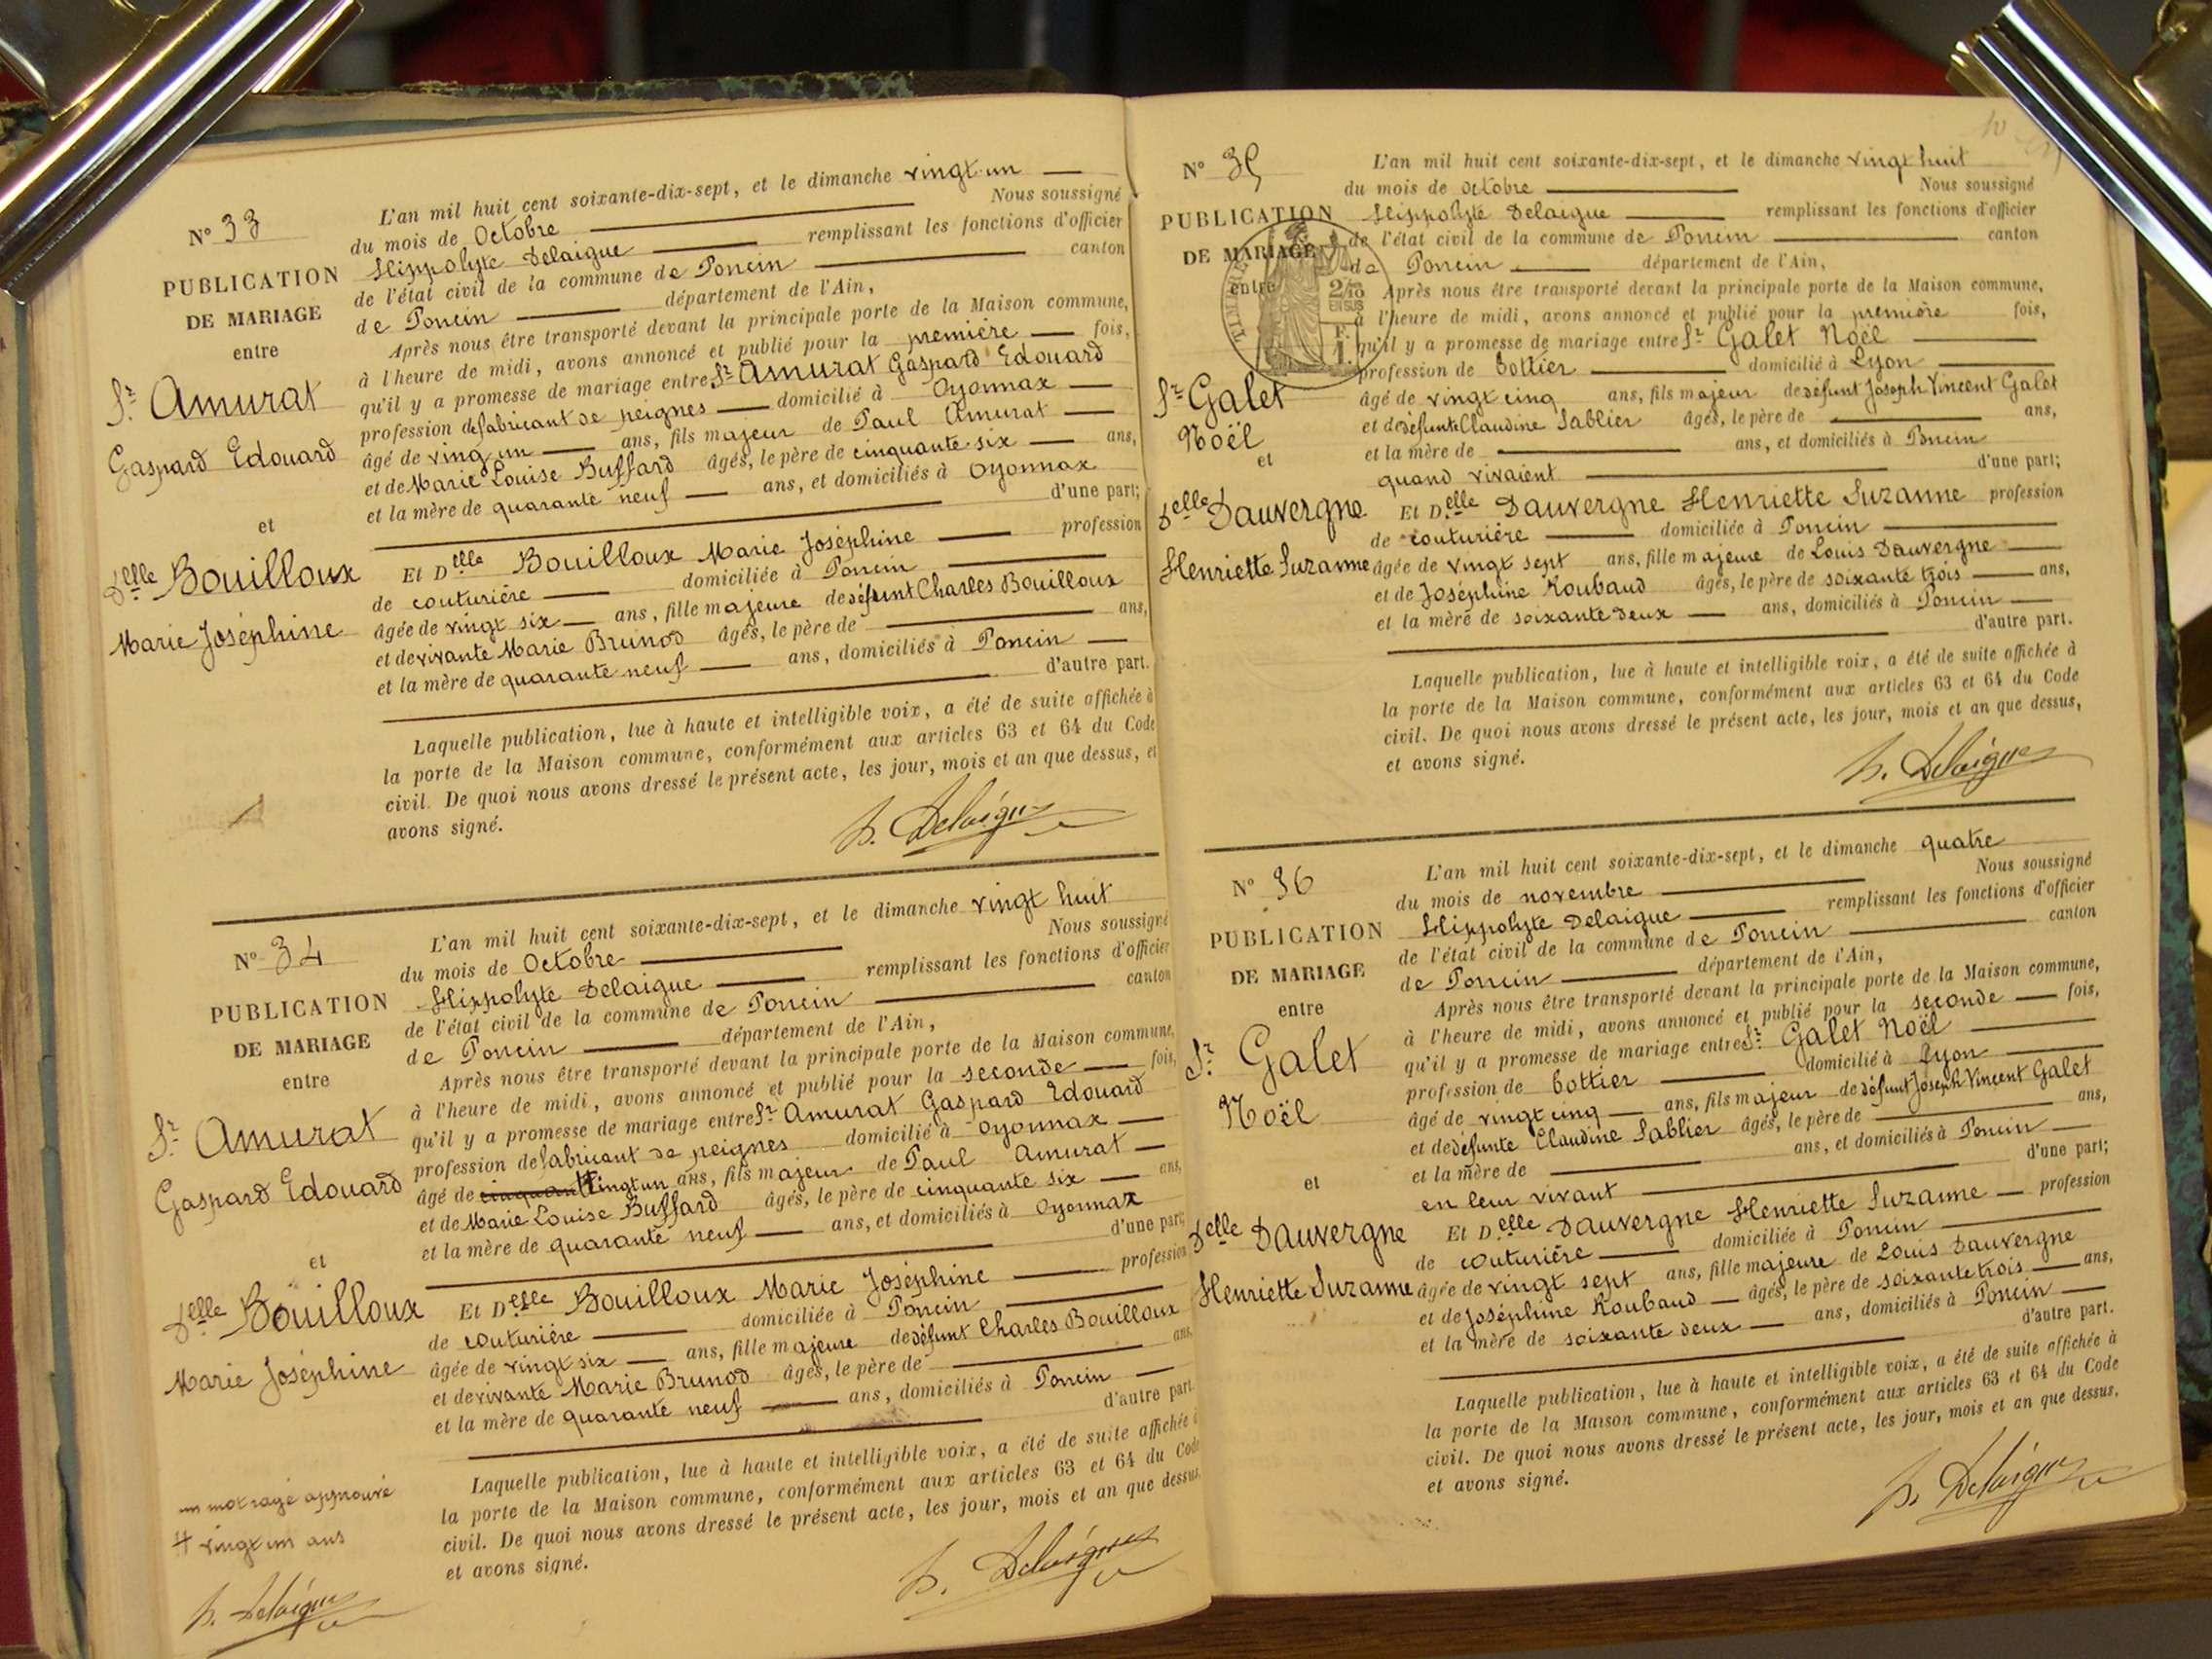 N° 33
PUBLICATION
DE MARIAGE
entre
Sr. Amurat
Gaspard Edouard
et
Delle Bouilloux
Marie Joséphine
L'an mil huit cent soixante-dix-sept, et le dimanche vingt-un
du mois de Octobre Nous soussigné
Hippolyte Delaigue remplissant les fonctions d'officier
de l'état civil de la commune de Poncin canton
de Poncin département de l'Ain,
Après nous être transporté devant la principale porte de la Maison commune,
à l'heure de midi, avons annoncé et publié pour la première fois,
qu'il y a promesse de mariage entre Sr. Amurat Gaspard Edouard
profession de fabricant de peignes domicilié à Oyonnax
âgé de vingt un ans, fils majeur de Paul Amurat
et de Marie Louise Buffard âgés, le père de cinquante-six ans,
et la mère de quarante neuf ans, et domiciliés à Oyonnax
d'une part;
Et Delle Bouilloux Marie Joséphine profession
de couturière domiciliée à Poncin
âgée de vingt six ans, fille majeure de défunt Charles Bouilloux
et de vivante Marie Brunod âgés, le père de ans,
et la mère de quarante-neuf ans, domiciliés à Poncin
d'autre part.
Laquelle publication, lue à haute et intelligible voix, a été de suite affichée à
la porte de la Maison commune, conformément aux articles 63 et 64 du Code
civil. De quoi nous avons dressé le présent acte, les jour, mois et an que dessus, et
avons signé.
h. Delaigue
N° 34
PUBLICATION
DE MARIAGE
entre
Sr. Amurat
Gaspard Edouard
et
Delle Bouilloux
Marie Joséphine
un mot rayé approuvé
# vingt un ans
h. Delaigue
L'an mil huit cent soixante-dix-sept, et le dimanche vingt huit
du mois de Octobre Nous soussigné
Hippolyte Delaigue remplissant les fonctions d'officier
de l'état civil de la commune de Poncin canton
de Poncin département de l'Ain,
Après nous être transporté devant la principale porte de la Maison commune,
à l'heure de midi, avons annoncé et publié pour la seconde fois,
qu'il y a promesse de mariage entre Sr. Amurat Gaspard Edouard
profession de fabricant de peignes domicilié à Oyonnax
âgé de cinquante # vingt un ans, fils majeur de Paul Amurat
et de Marie Louise Buffard âgés, le père de cinquante six ans,
et la mère de quarante neuf ans, et domiciliés à Oyonnax
d'une part;
Et Delle Bouilloux Marie Joséphine profession
de couturière domiciliée à Poncin
âgée de vingt six ans, fille majeure de défunt Charles Bouilloux
et de vivante Marie Brunod âgés, le père de ans,
et la mère de quarante neuf ans, domiciliés à Poncin
d'autre part.
Laquelle publication, lue à haute et intelligible voix, a été de suite affichée à
la porte de la Maison commune, conformément aux articles 63 et 64 du Code
civil. De quoi nous avons dressé le présent acte, les jour, mois et an que dessus,
et avons signé.
h. Delaigue
N° 35
PUBLICATION
DE MARIAGE
entre
TIMBRE
2/10
EN SUS
F.
1.
Sr. Galet
Noël
et
Delle Dauvergne
Henriette Suzanne
L'an mil huit cent soixante-dix-sept, et le dimanche vingt huit
du mois de Octobre Nous soussigné
Hippolyte Delaigue remplissant les fonctions d'officier
de l'état civil de la commune de Poncin canton
de Poncin département de l'Ain,
Après nous être transporté devant la principale porte de la Maison commune,
à l'heure de midi, avons annoncé et publié pour la première fois,
qu'il y a promesse de mariage entre Sr. Galet Noël
profession de bottier domicilié à Lyon
âgé de vingt cinq ans, fils majeur de défunt Joseph Vincent Galet
et de défunte Claudine Sablier âgés, le père de ans,
et la mère de ans, et domiciliés à Poncin
quand vivaient d'une part;
Et Delle Dauvergne Henriette Suzanne profession
de couturière domiciliée à Poncin
âgée de vingt sept ans, fille majeure de Louis Dauvergne
et de Joséphine Roubaud âgés, le père de soixante trois ans,
et la mère de soixante deux ans, domiciliés à Poncin
d'autre part.
Laquelle publication, lue à haute et intelligible voix, a été de suite affichée à
la porte de la Maison commune, conformément aux articles 63 et 64 du Code
civil. De quoi nous avons dressé le présent acte, les jour, mois et an que dessus,
et avons signé.
h. Delaigue
N° 36
PUBLICATION
DE MARIAGE
entre
Sr. Galet
Noël
et
Delle Dauvergne
Henriette Suzanne
L'an mil huit cent soixante-dix-sept, et le dimanche quatre
du mois de novembre Nous soussigné
Hippolyte Delaigue remplissant les fonctions d'officier
de l'état civil de la commune de Poncin canton
de Poncin département de l'Ain,
Après nous être transporté devant la principale porte de la Maison commune,
à l'heure de midi, avons annoncé et publié pour la seconde fois,
qu'il y a promesse de mariage entre Sr. Galet Noël
profession de bottier domicilié à Lyon
âgé de vingt cinq ans, fils majeur de défunt Joseph Vincent Galet
et de défunte Claudine Sablier âgés, le père de ans,
et la mère de ans, et domiciliés à Poncin
en leur vivant d'une part;
Et Delle Dauvergne Henriette Suzanne profession
de couturière domiciliée à Poncin
âgée de vingt sept ans, fille majeure de Louis Dauvergne
et de Joséphine Roubaud âgés, le père de soixante trois ans,
et la mère de soixante deux ans, domiciliés à Poncin
d'autre part.
Laquelle publication, lue à haute et intelligible voix, a été de suite affichée à
la porte de la Maison commune, conformément aux articles 63 et 64 du Code
civil. De quoi nous avons dressé le présent acte, les jour, mois et an que dessus,
et avons signé.
h. Delaigue